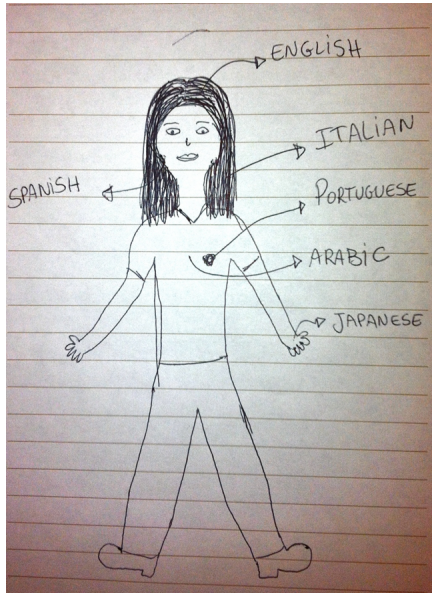 ENGLISH
ITALIAN
SPANISH
PORTUGUESE
ARABIC
JAPANESE